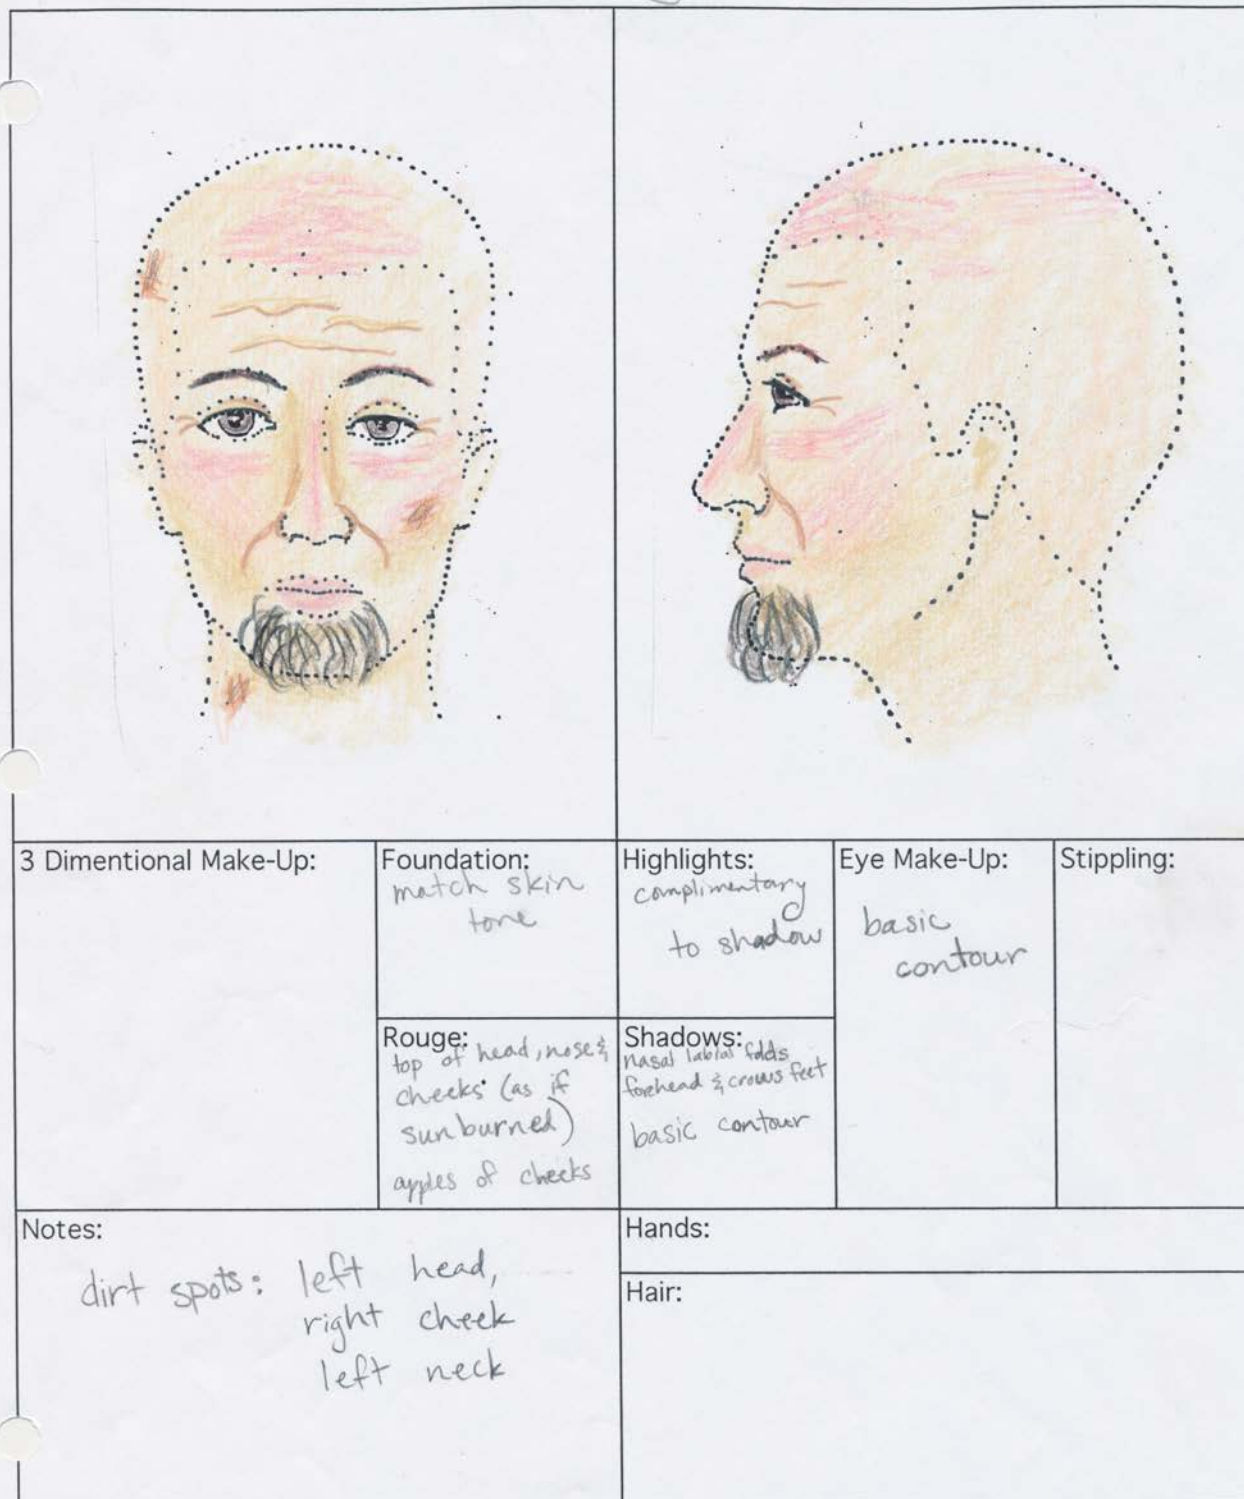 3 Dimentional Make-Up:
Foundation:
match skin
tone
Highlights:
complimentary
to shadow
Eye Make-Up:
basic
contour
Stippling:
Rouge:
top of head, nose &
cheeks (as if
sunburned)
apples of cheeks
Shadows:
nasal labial folds
forehead & crows feet
basic contour
Notes:
dirt spots: left head,
right cheek
left neck
Hands:
Hair: